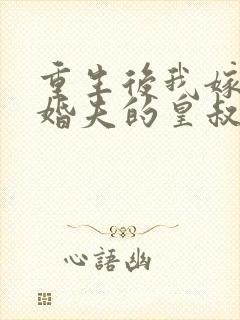 重生後我嫁
婚夫的皇叔
心語幽